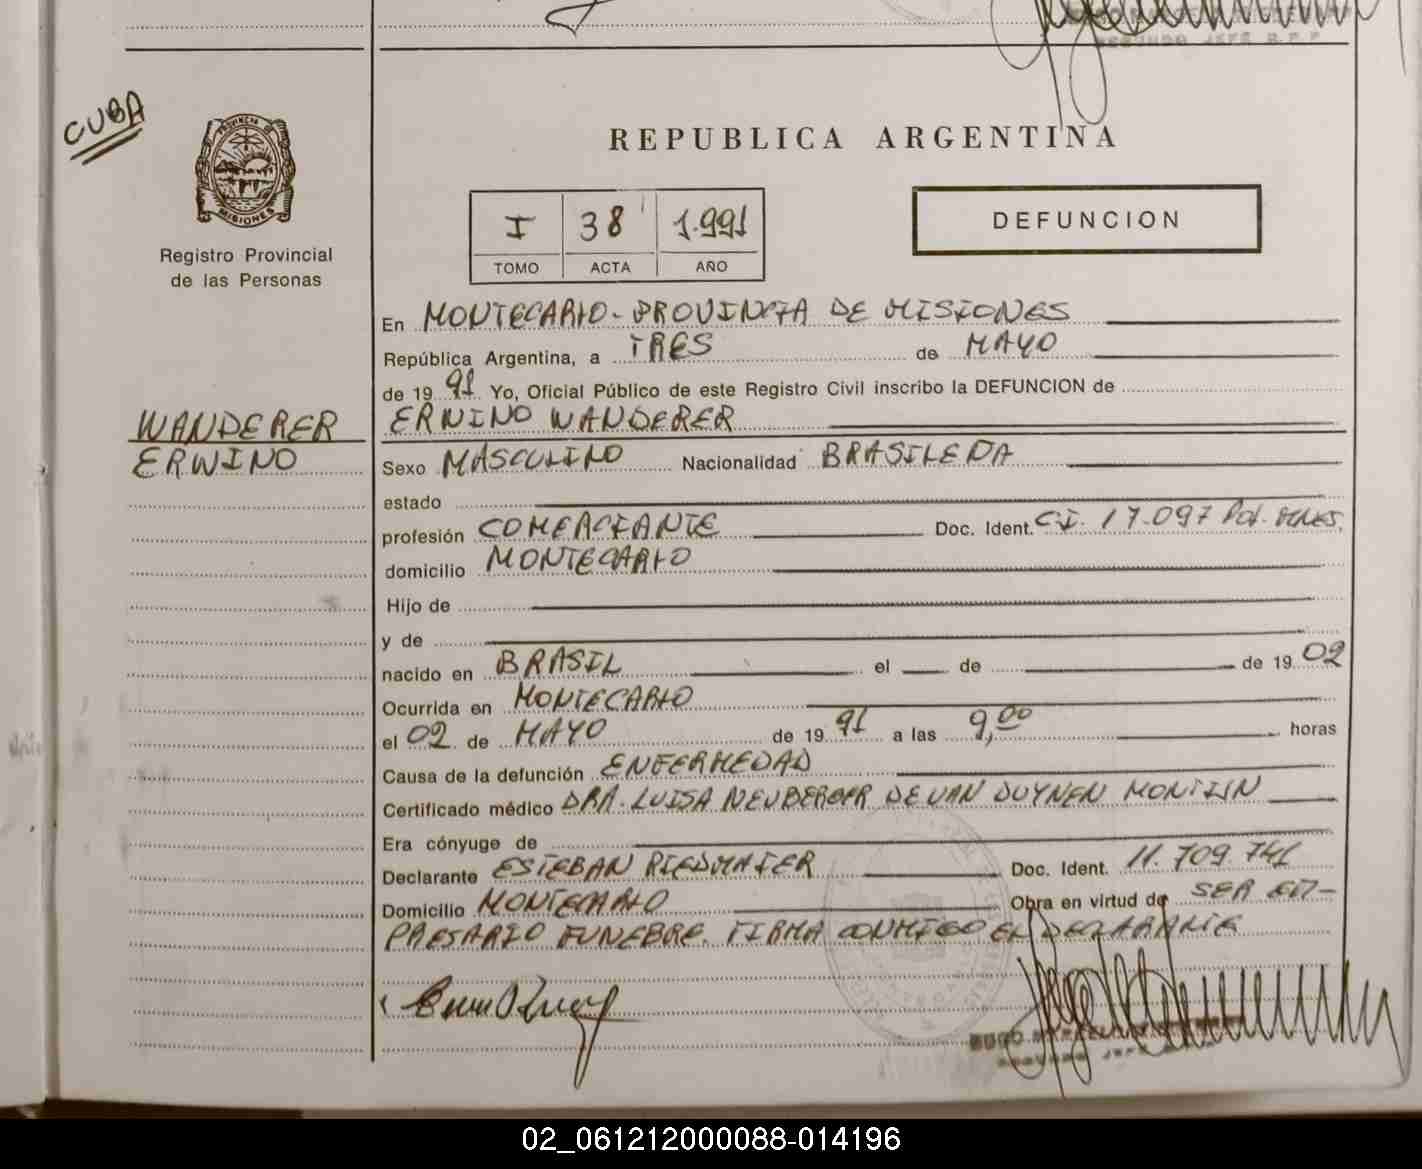 CUBA
PROVINCIA DE
MISIONES
Registro Provincial
de las Personas
REPUBLICA ARGENTINA
I 38 1.991
TOMO ACTA AÑO
DEFUNCION
En MONTECARLO - PROVINCIA DE MISIONES
República Argentina, a TRES de MAYO
de 19 91 Yo, Oficial Público de este Registro Civil inscribo la DEFUNCION de
WANDERER
ERWINO WANDERER
ERWINO
Sexo MASCULINO Nacionalidad BRASILEÑA
estado
profesión COMERCIANTE Doc. Ident. C.I. 17.097 Pol. MNES.
domicilio MONTECARLO
Hijo de
y de
nacido en BRASIL el de de 19 02
Ocurrida en MONTECARLO
el 02 de MAYO de 19 91 a las 9,00 horas
Causa de la defunción ENFERMEDAD
Certificado médico DRA. LUISA NEUBERGER DE VAN DUYNEN MONTIJN
Era cónyuge de
Declarante ESTEBAN RIEDMAIER Doc. Ident. 11.709.741
Domicilio MONTECARLO Obra en virtud de SER EM-
PRESARIO FUNEBRE. FIRMA CONMIGO EL DECLARANTE
02_061212000088-014196